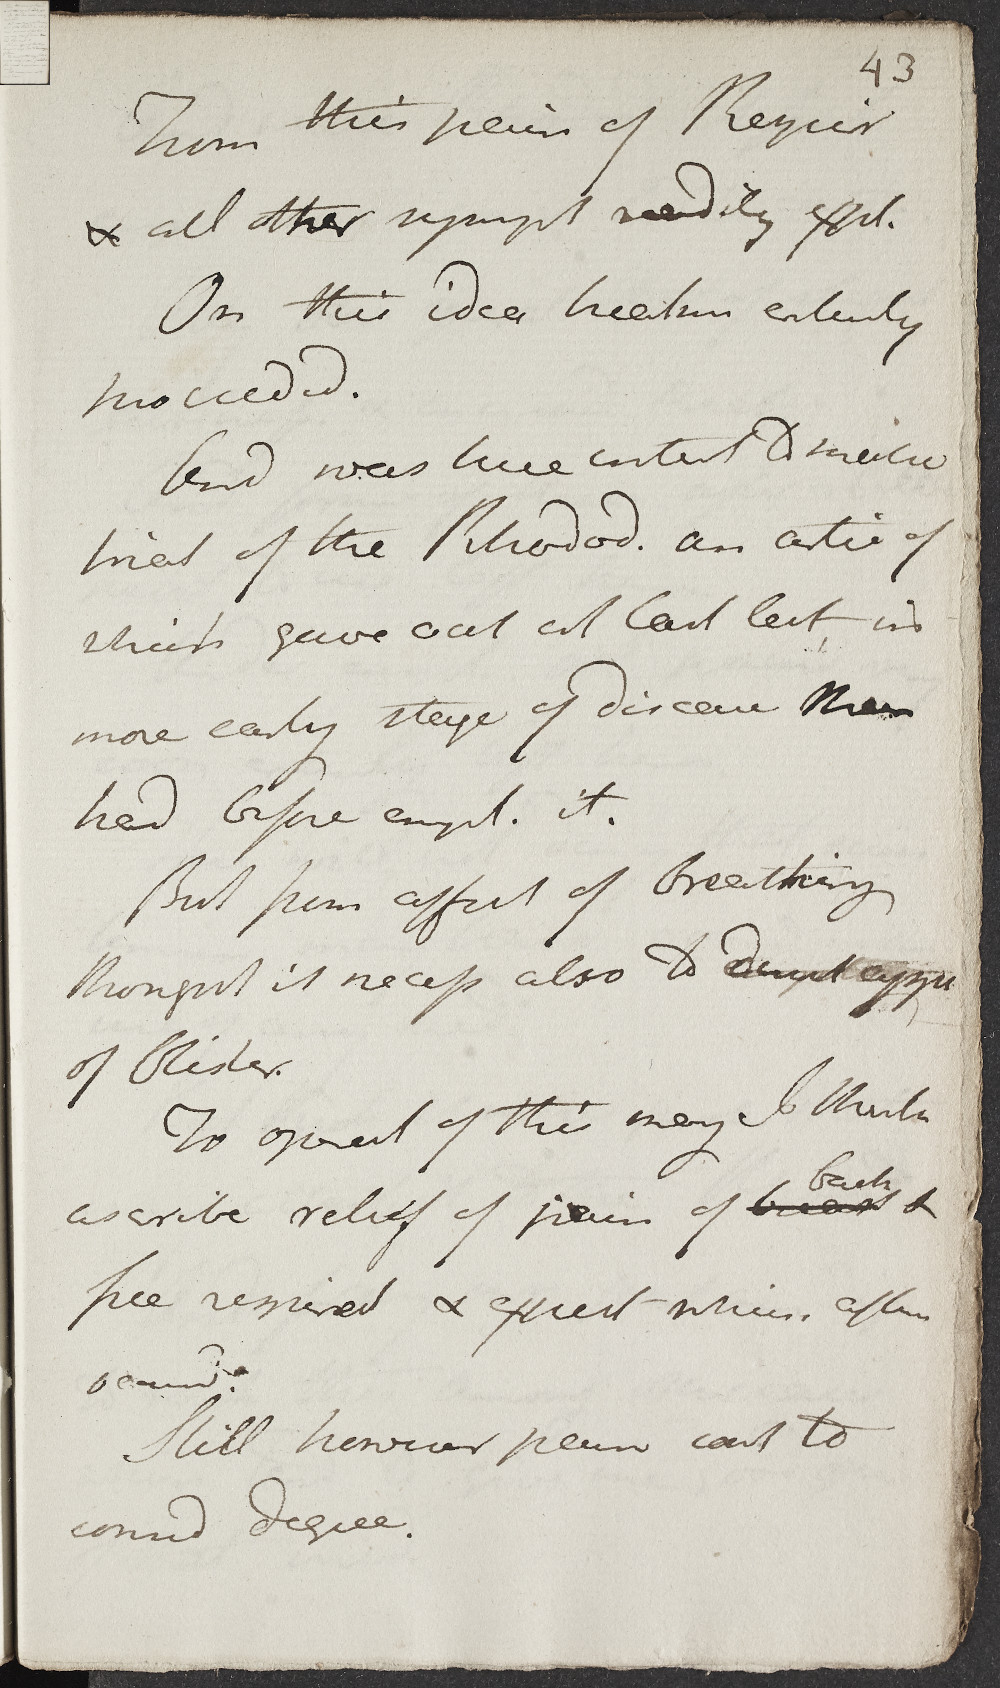 43
From this pain of Respir
& all other sympt readily expl.
On this idea treatm entirely
proceeded.
And was here intent to make
trial of the Rhodod. an artic of
which gave out at least last in
more early stage of disease than
had before empl. it.
But from affect of breathing
thought it necess also to
of Blister.
To operat of this may I think
ascribe relief of pain of breast back &
free respirat & expect which after
occurrd.
Still however pain cont to
consid degree.